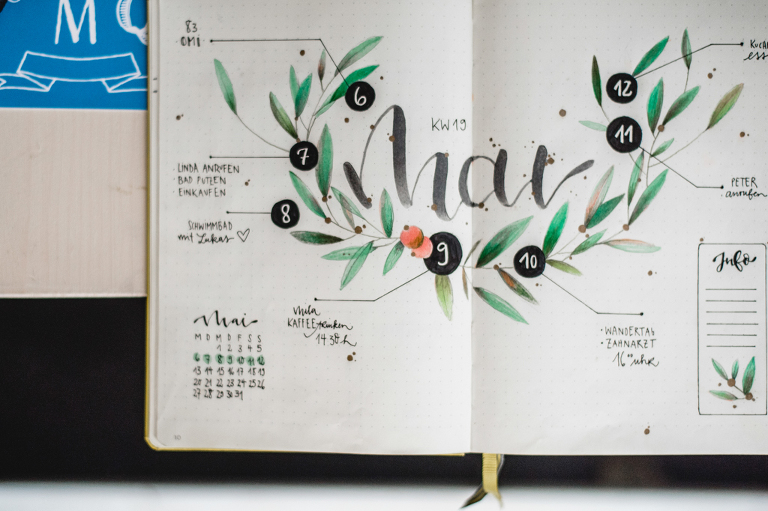 M
83
OMI
6
KW19
Mai
7
· LINDA ANRUFEN
· BAD PUTZEN
· EINKAUFEN
8
SCHWIMMBAD
mit Lukas ♡
9
10
Mila
KAFFEE trinken
14:30h
Mai
M D M D F S S
1 2 3 4 5
6 7 8 9 10 11 12
13 14 15 16 17 18 19
20 21 22 23 24 25 26
27 28 29 30 31
12
11
PETER
anrufen
Info
· WANDERTAG
· ZAHNARZT
16⁰⁰ uhr